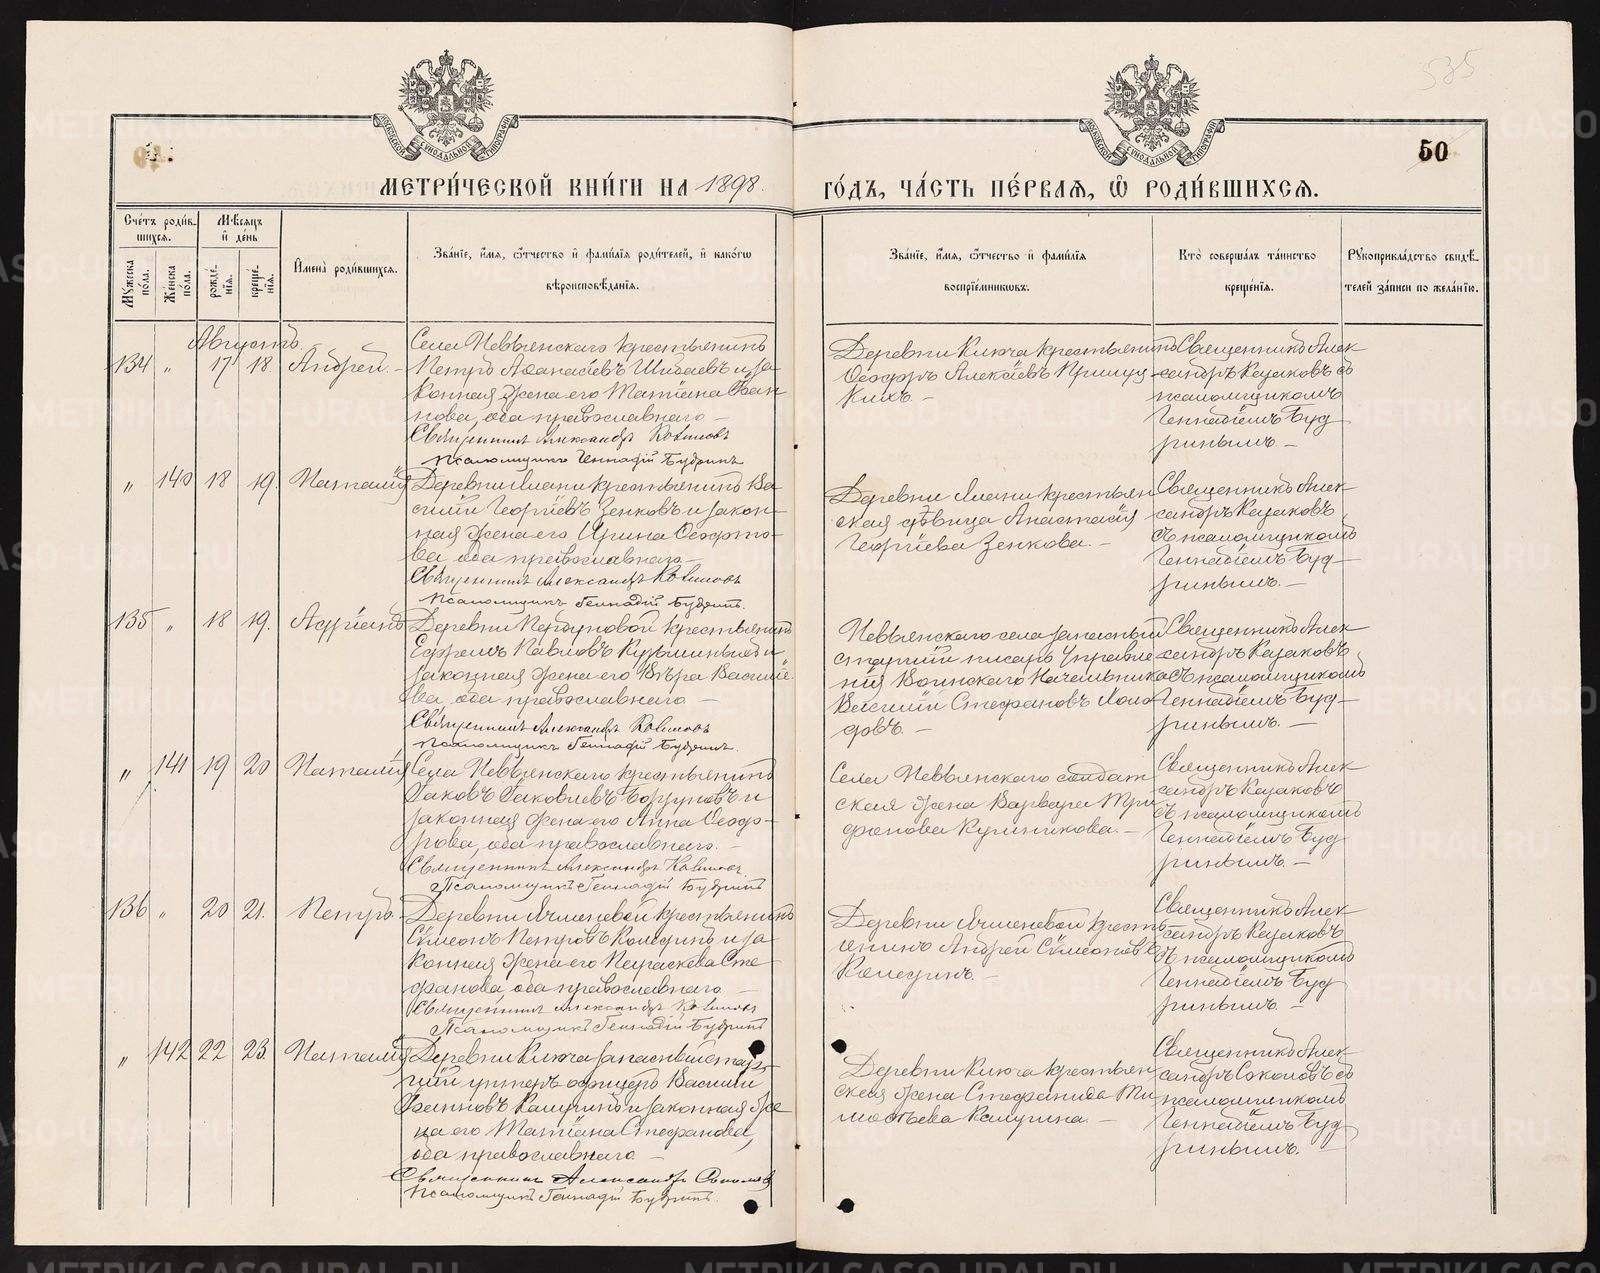 535
50
МОСКОВСКОЙ СѴНОДАЛЬНОЙ ТИПОГРАФІИ
МОСКОВСКОЙ СѴНОДАЛЬНОЙ ТИПОГРАФІИ
МЕТРИ́ЧЕСКОЙ КНИ́ГИ НА 1898.
ГО́ДЪ, ЧА́СТЬ ПЕ́РВАЯ, Ѡ РОДИ́ВШИХСЯ.
Сче́тъ роди́вшихся.
Му́жеска по́ла.
Же́нска по́ла.
Мѣ́сяцъ и де́нь
рожде́нія.
креще́нія.
Имена̀ роди́вшихся.
Зва́ніе, и́мя, ѻ́тчество и фами́лія роди́телей, и како́гѡ
вѣроисповѣ́данія.
Зва́ніе, и́мя, ѻ́тчество и фами́лія
воспріе́мникѡвъ.
Кто̀ соверша́лъ та́инство
креще́нія.
Рꙋкоприкла́дство свидѣ́-
телей за́писи по жела́нію.
Августъ.
134 " 17 18. Андрей. —
Села Невьянскаго крестьянинъ
Петръ Аѳанасіевъ Шибаевъ и за
конная жена его Татіана Ѳеан
нова, оба православнаго —
Священникъ Александръ Казаковъ
Псаломщикъ Геннадій Будринъ
Деревни Ключа крестьянинъ
Ѳеодоръ Алексіевъ Примуц
кихъ. —
Священникъ Алек
сандръ Казаковъ съ
псаломщикомъ
Геннадіемъ Буд
ринымъ. —
" 140 18 19. Наталія
Деревни Ялани крестьянинъ Ва
силій Георгіевъ Зенковъ и закон-
ная жена его Ирина Ѳеодото-
ва, оба православнаго —
Священникъ Александръ Казаковъ
Псаломщикъ Геннадій Будринъ.
Деревни Ялани крестьян
ская дѣвица Анастасія
Георгіева Зенкова. —
Священникъ Алек
сандръ Казаковъ
съ псаломщикомъ
Геннадіемъ Буд-
ринымъ. —
135 " 18 19. Адріанъ
Деревни Пердуновой крестьянинъ
Ефремъ Павловъ Кузьминыхъ и
законная жена его Вѣра Василіе
ва, оба православнаго —
Священникъ Александръ Казаковъ
Псаломщикъ Геннадій Будринъ.
Невьянскаго села запасный
старшій писарь Управле
нія Воинскаго Начальника
Василій Стефановъ Холо
довъ. —
Священникъ Алек
сандръ Казаковъ
съ псаломщикомъ
Геннадіемъ Буд-
ринымъ. —
" 141 19 20 Наталія
Села Невьянскаго крестьянинъ
Іаковъ Іаковлевъ Борзуновъ и
законная жена его Анна Ѳеодо-
рова, оба православнаго. —
Священникъ Александръ Казаковъ
Псаломщикъ Геннадій Будринъ
Села Невьянскаго солдат
ская жена Варвара Три
фонова Кузнинкова. —
Священникъ Алек
сандръ Казаковъ
съ псаломщикомъ
Геннадіемъ Буд
ринымъ. —
136 " 20 21. Петръ. —
Деревни Ячменевой крестьянинъ
Сѵмеонъ Петровъ Калединъ и за
конная жена его Параскева Сте
фанова, оба православнаго —
Священникъ Александръ Казаковъ
Псаломщикъ Геннадій Будринъ
Деревни Ячменевой кресть
янинъ Андрей Сѵмеоновъ
Калединъ. —
Священникъ Алек
сандръ Казаковъ
съ псаломщикомъ
Геннадіемъ Буд
ринымъ. —
" 142 22 23. Наталія
Деревни Ключа запасный стар
шій унтеръ офицеръ Василій
Филиповъ Калугинъ и законная же
на его Татіана Стефанова,
оба православнаго. —
Священникъ Александръ Соколовъ
Псаломщикъ Геннадій Будринъ.
Деревни Ключа крестьян
ская жена Стефанида Ти
моѳеева Калугина. —
Священникъ Алек
сандръ Соколовъ съ
псаломщикомъ
Геннадіемъ Буд
ринымъ. —
METRIKI.GASO-URAL.RU